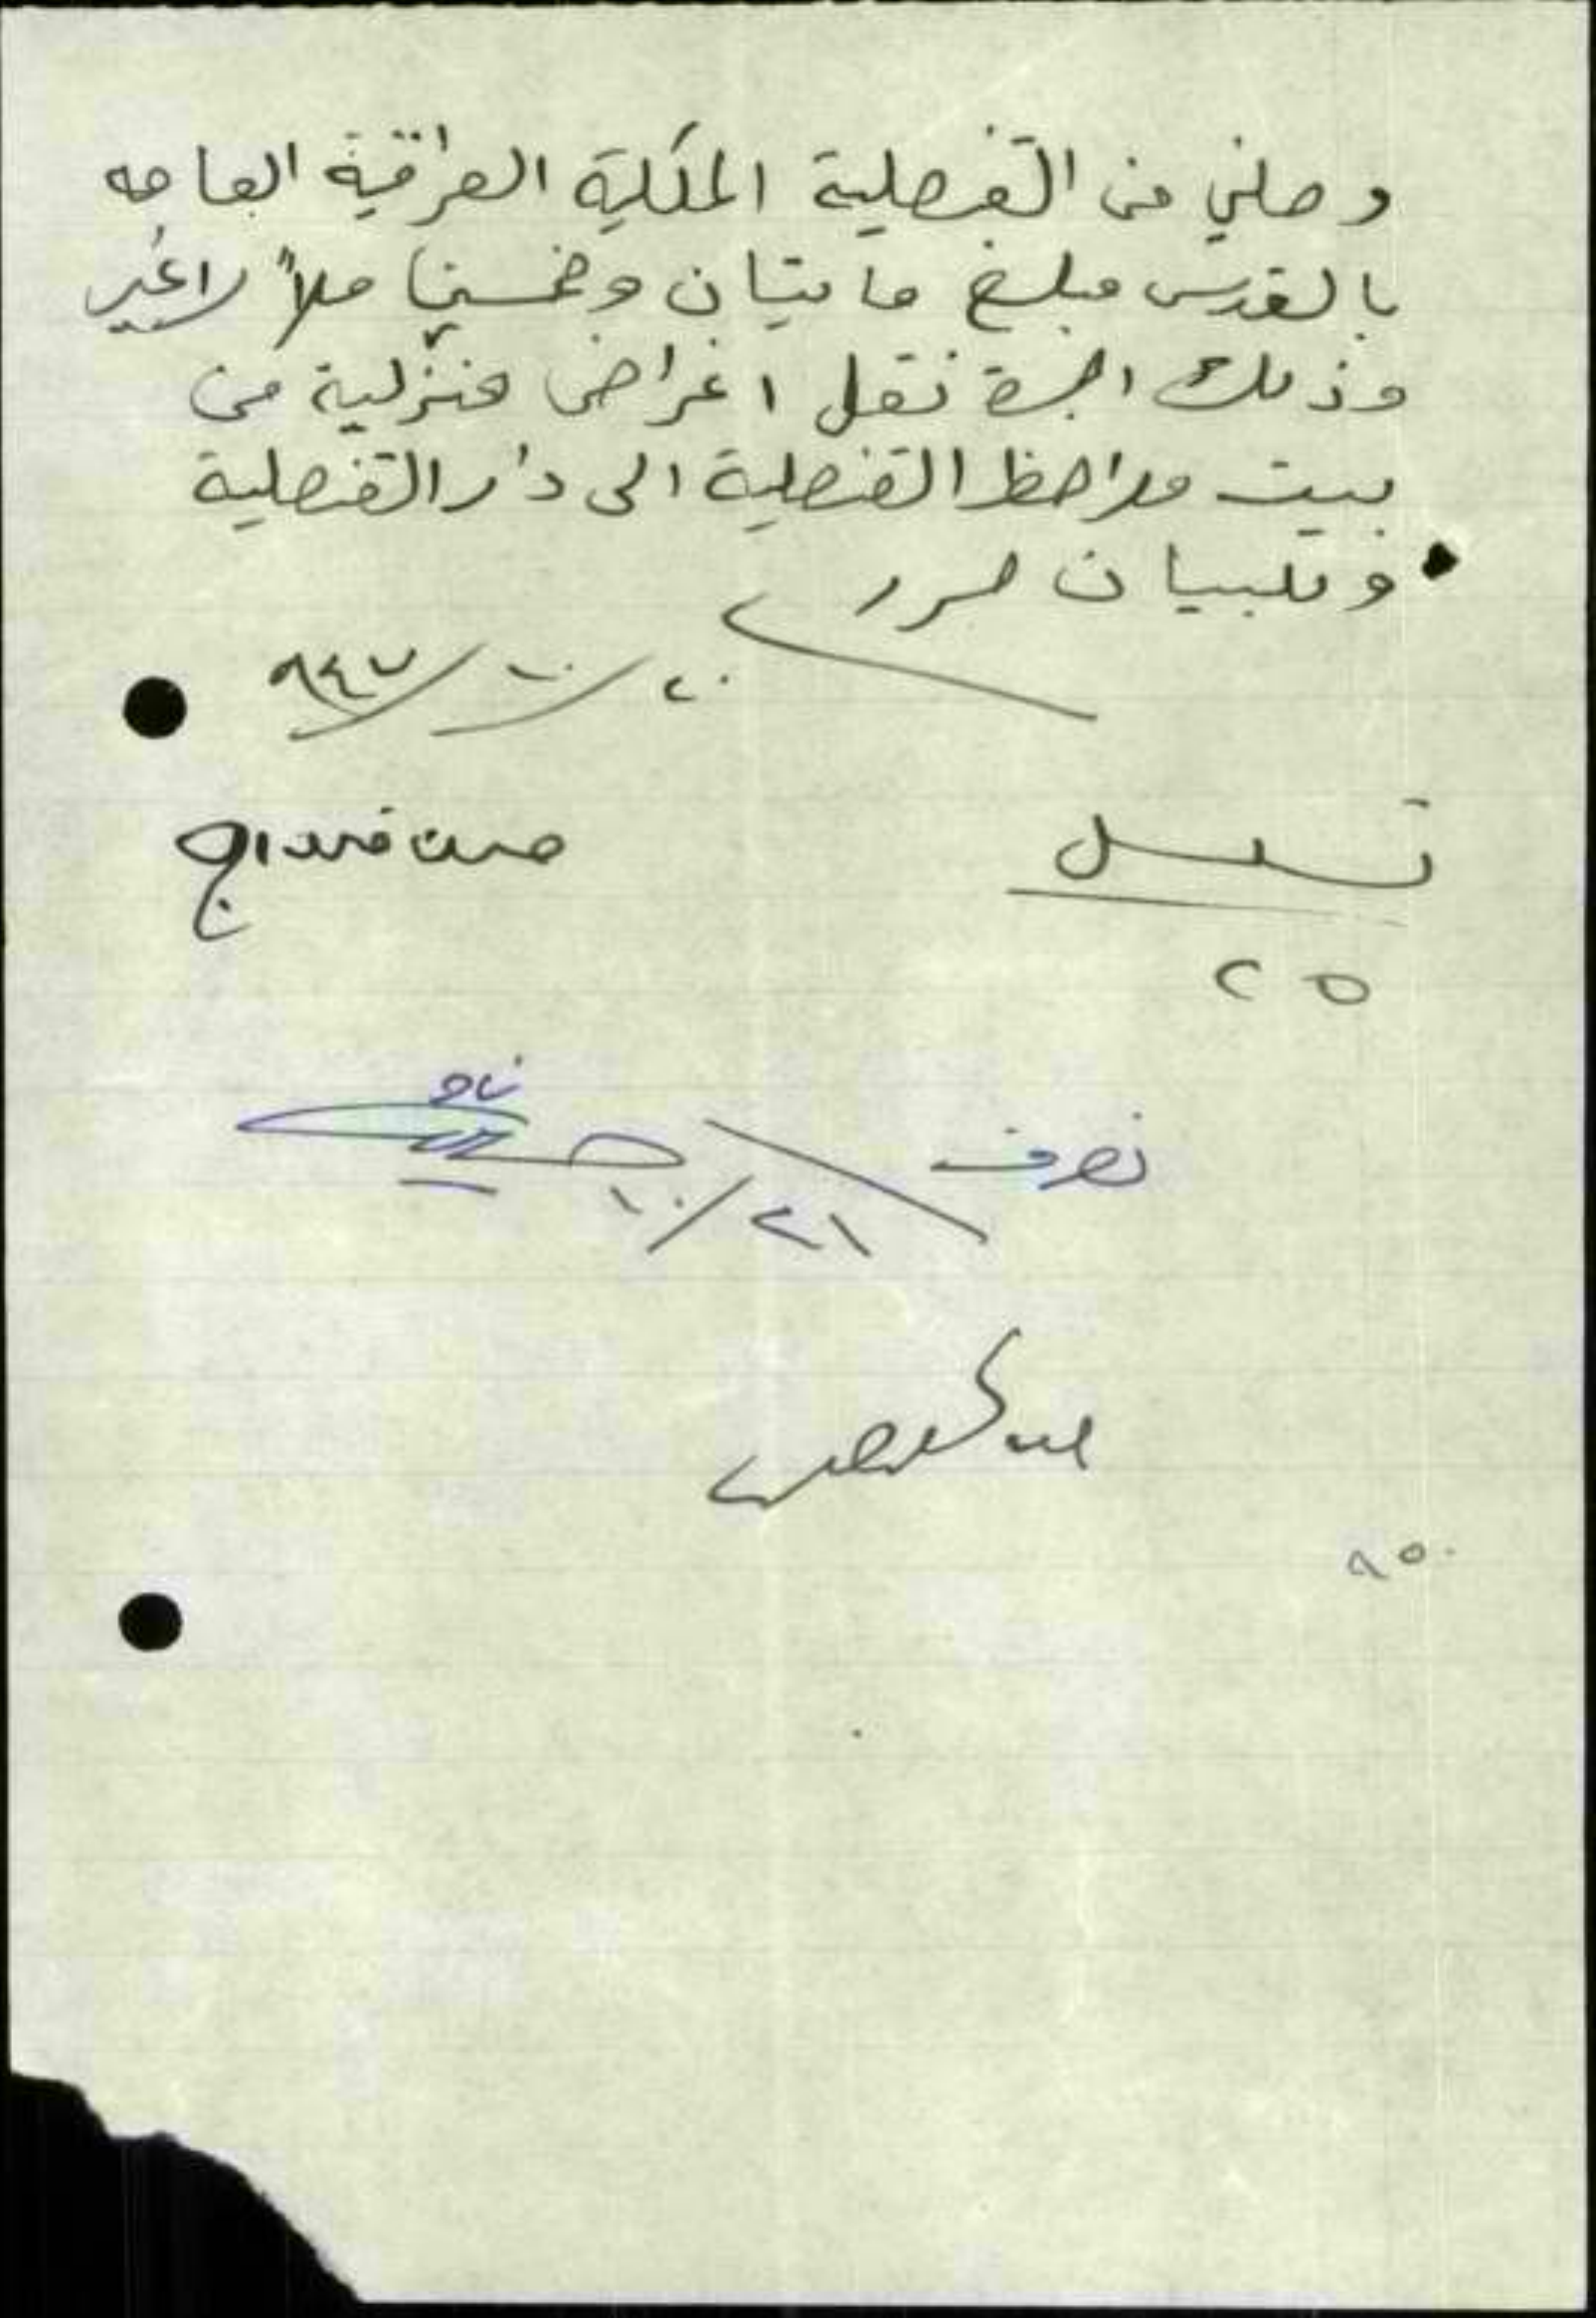 وصلني من القنصلية الملكية العراقية العامه
بالقدس مبلغ مايتان وخمسين ملاً لاغير
وذلك اجرة نقل اغراض منزلية من
بيت ملاحظ القنصلية الى دار القنصلية
وللبيان حرر
٢٠/١٠/٩٤٧
تسلسل
٢٥
تصرف
٢١/١٠